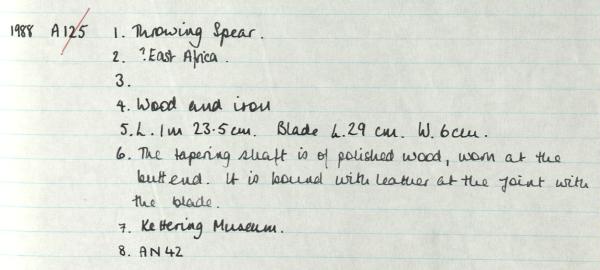 1988 A125 1. Throwing Spear.
2. ?East Africa.
3.
4. Wood and iron
5. L. 1m 23.5cm. Blade L. 29 cm. W. 6cm.
6. The tapering shaft is of polished wood, worn at the
butt end. It is bound with leather at the joint with
the blade.
7. Kettering Museum.
8. AN42